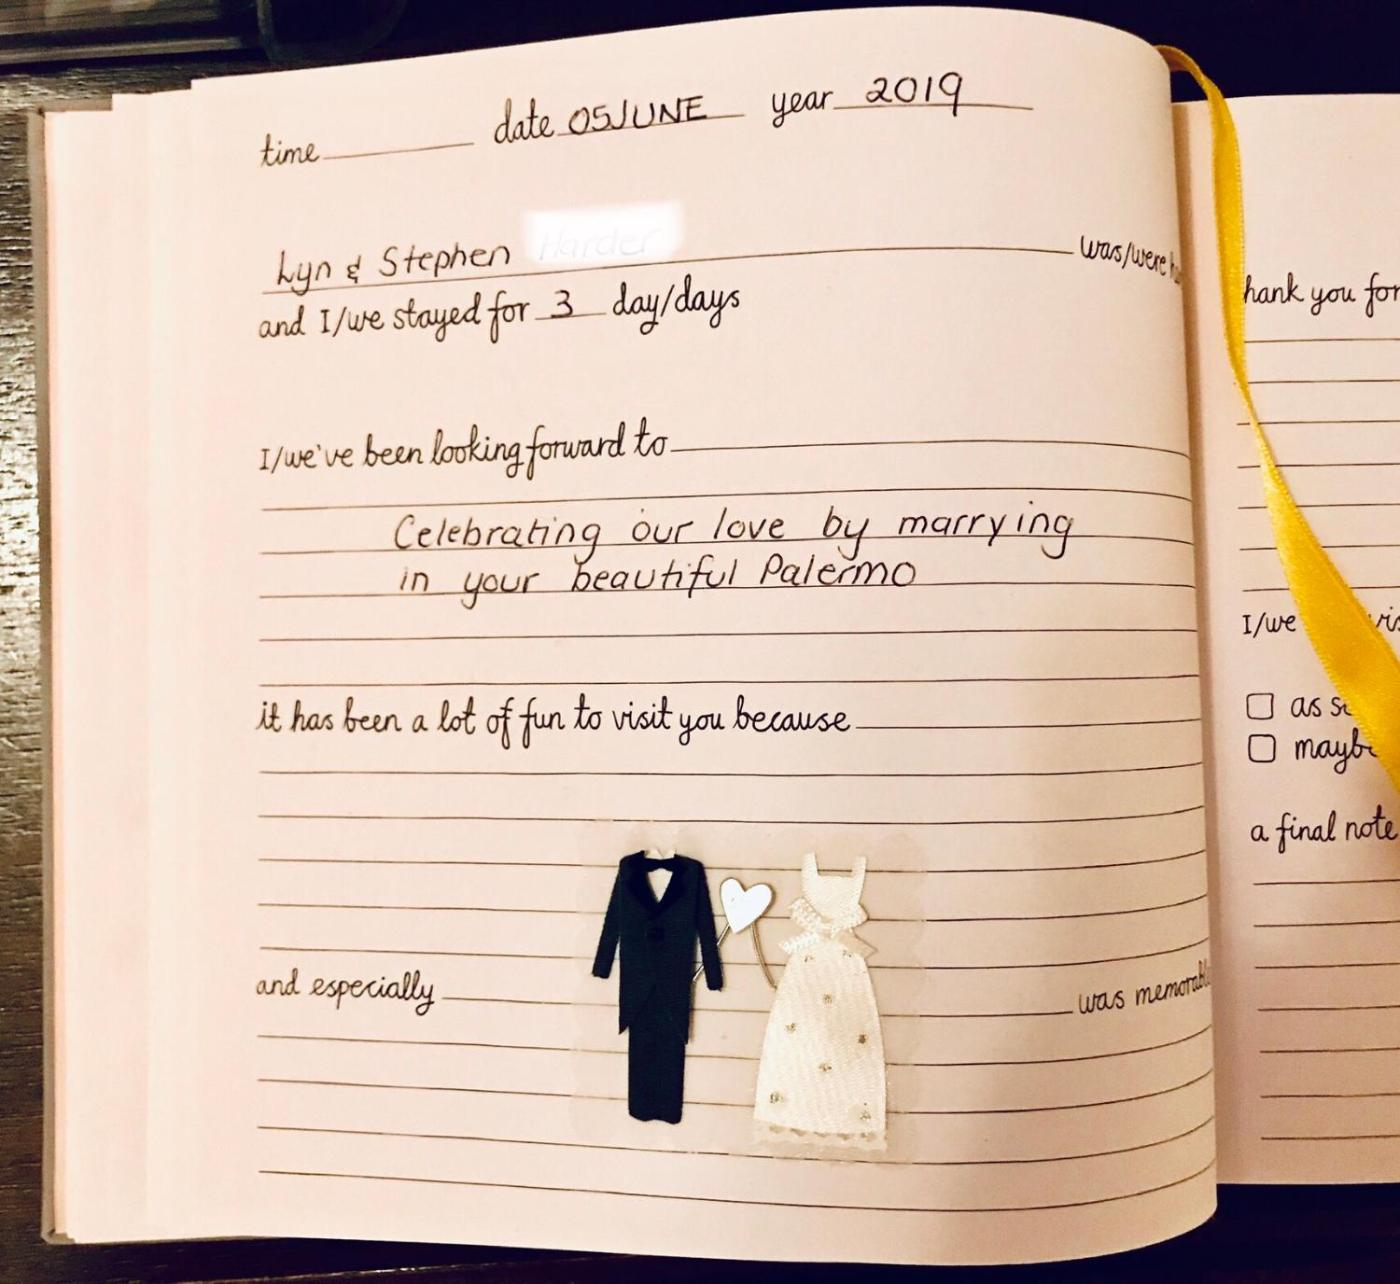 time date 05JUNE year 2019
Lyn & Stephen was/were
and I/we stayed for 3 day/days
I/we've been looking forward to
Celebrating our love by marrying
in your beautiful Palermo
it has been a lot of fun to visit you because
and especially was memorable
hank you for
I/we
as
maybe
a final note